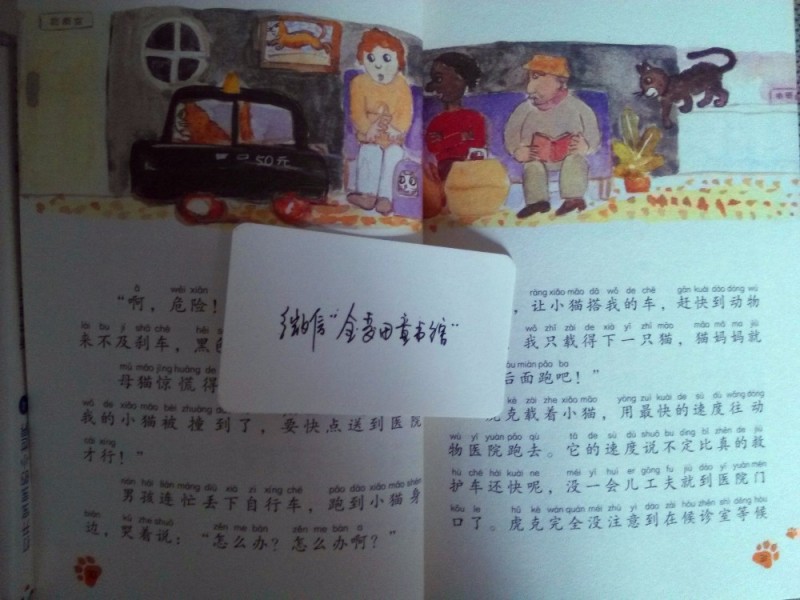 50元
微信"全意田童书馆"
ā wēi xiǎn
"啊，危险！
lái bu jí shā chē hēi
来不及刹车，黑色
mǔ māo jīng huāng de
母猫惊慌得
wǒ de xiǎo māo bèi zhuàng
我的小猫被撞到了，要快点送到医院
cái xíng
才行！"
nán hái lián máng diū xià zì xíng chē pǎo dào xiǎo māo shēn
男孩连忙丢下自行车，跑到小猫身
biān kū zhe shuō zěn me bàn zěn me bàn a
边，哭着说："怎么办？怎么办啊？"
ràng xiǎo māo dā wǒ de chē gǎn kuài dào dòng wù
，让小猫搭我的车，赶快到动物
wǒ zhǐ zài de xià yì zhī māo māo mā ma jiù
我只载得下一只猫，猫妈妈就
hòu miàn pǎo ba
后面跑吧！"
yòng zuì kuài de sù dù wǎng dòng
虎克载着小猫，用最快的速度往动
wù yī yuàn pǎo qù tā de sù dù shuō bu dìng bǐ zhēn de jiù
物医院跑去。它的速度说不定比真的救
hù chē hái kuài ne méi yí huìr gōng fu jiù dào yī yuàn mén
护车还快呢，没一会儿工夫就到医院门
kǒu le hǔ kè wán quán méi zhù yì dào zài hòu zhěn shì děng hòu
口了。虎克完全没注意到在候诊室等候